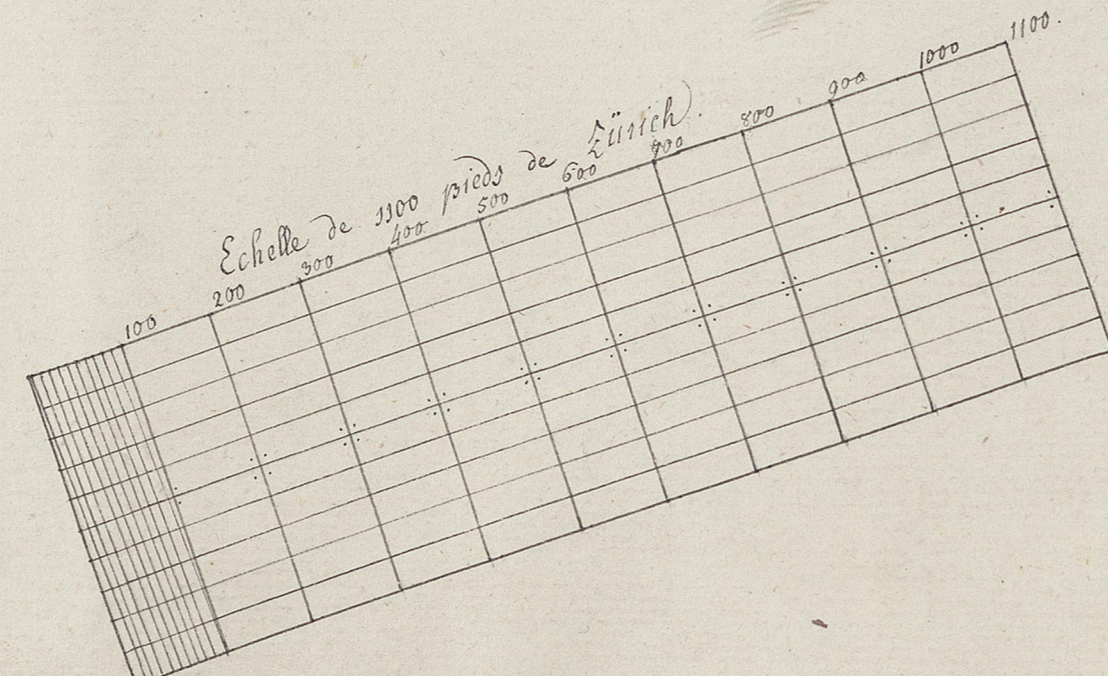 Echelle de 1100 pieds de Zürich.
100 200 300 400 500 600 700 800 900 1000 1100.